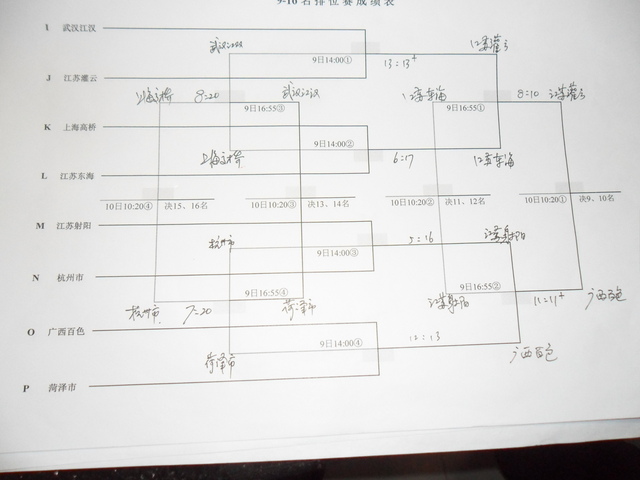 9-16 名排位赛成绩表
I 武汉江汉
武汉江汉
9日14:00①
13:13+
江苏灌云
J 江苏灌云
上海高桥
8:20
武汉江汉
江苏东海
8:10
江苏灌云
9日16:55③
9日16:55①
K 上海高桥
9日14:00②
上海高桥
6:17
江苏东海
L 江苏东海
10日10:20④
决15、16名
10日10:20③
决13、14名
10日10:20②
决11、12名
10日10:20①
决9、10名
M 江苏射阳
杭州市
9日14:00③
5:16
江苏射阳
N 杭州市
9日16:55④
9日16:55②
杭州市
7:20
菏泽市
江苏射阳
11:11+
广西百色
O 广西百色
9日14:00④
12:13
菏泽市
广西百色
P 菏泽市